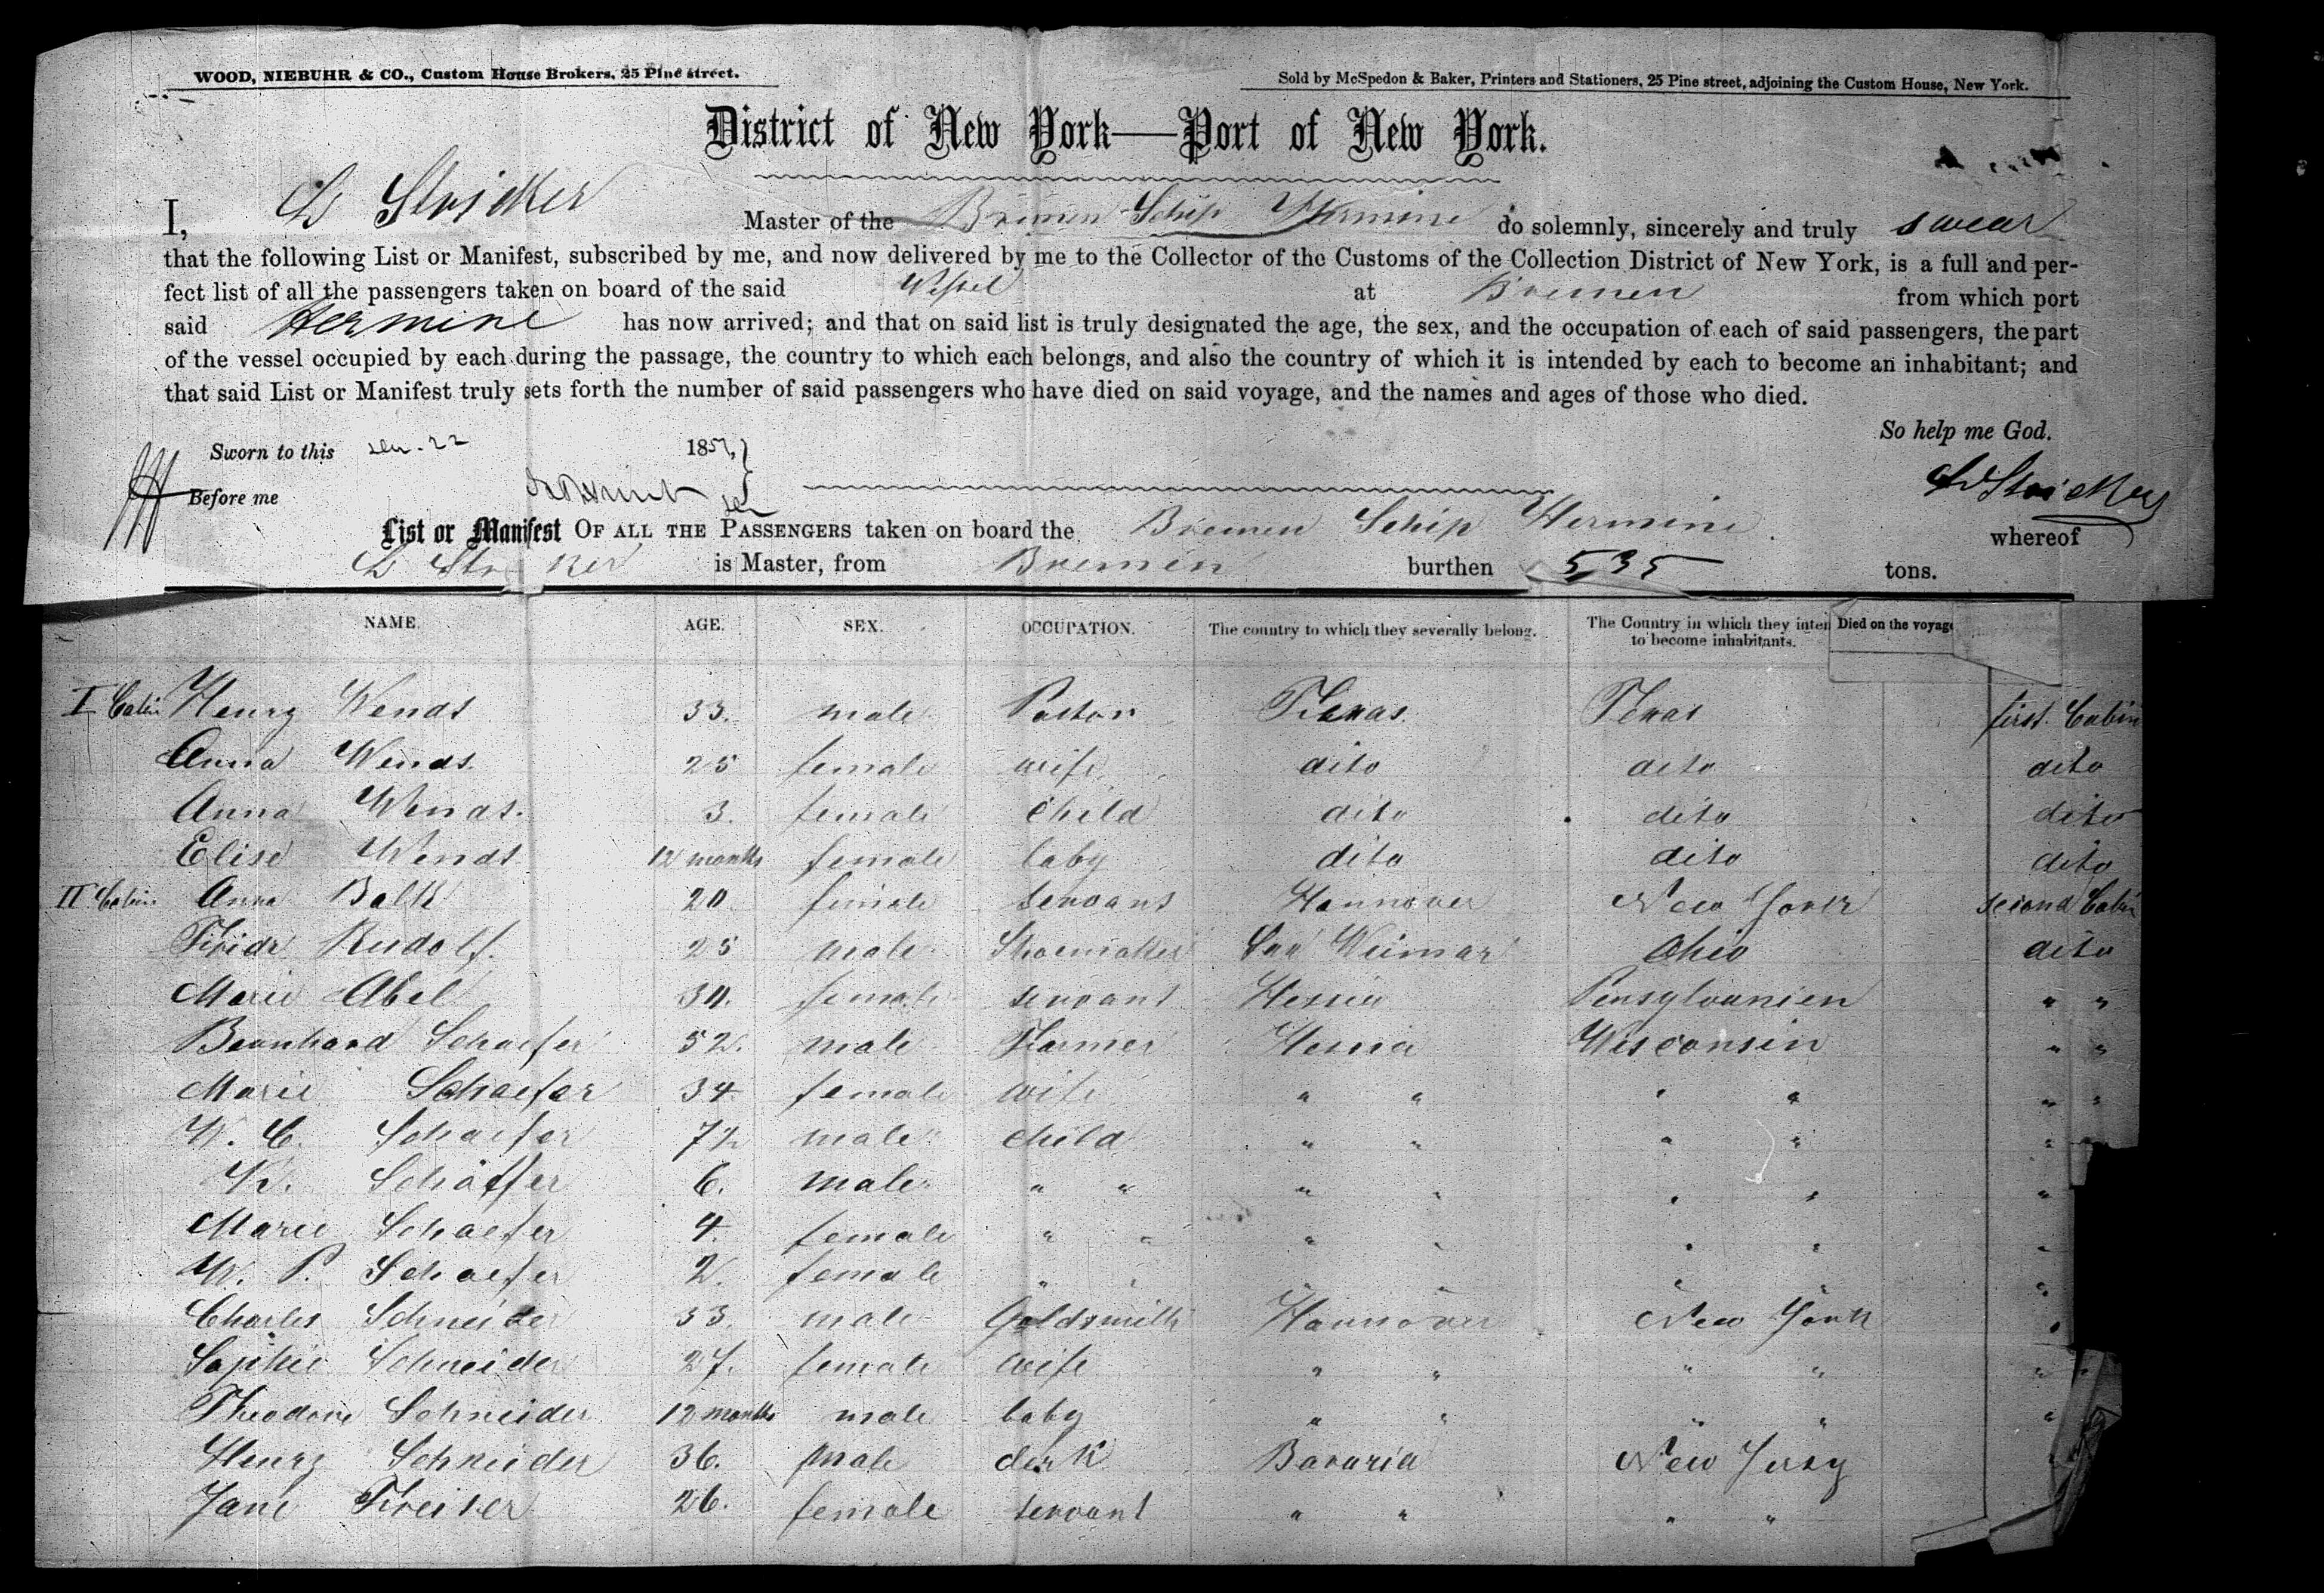 WOOD, NIEBUHR & CO., Custom House Brokers, 25 Pine street.
Sold by McSpedon & Baker, Printers and Stationers, 25 Pine street, adjoining the Custom House, New York.
District of New York—Port of New York.
I, D Stricker Master of the Bremen Schip Hermine do solemnly, sincerely and truly swear
that the following List or Manifest, subscribed by me, and now delivered by me to the Collector of the Customs of the Collection District of New York, is a full and per-
fect list of all the passengers taken on board of the said Vessel at Bremen from which port
said Hermine has now arrived; and that on said list is truly designated the age, the sex, and the occupation of each of said passengers, the part
of the vessel occupied by each during the passage, the country to which each belongs, and also the country of which it is intended by each to become an inhabitant; and
that said List or Manifest truly sets forth the number of said passengers who have died on said voyage, and the names and ages of those who died.
So help me God.
Sworn to this 22 1857,
Before me
D Stricker
List or Manifest OF ALL THE PASSENGERS taken on board the Bremen Schip Hermine whereof
D Stricker is Master, from Bremen burthen 535 tons.
NAME. AGE. SEX. OCCUPATION. The country to which they severally belong. The Country in which they inten Died on the voyage
to become inhabitants.
I Cabin Henry Wendt 33. male Pastor Texas. Texas first Cabin
Anna Wendt 25 female wife dito dito dito
Anna Wendt. 3. female child dito dito dito
Elise Wendt 12 months female baby dito dito dito
II Cabin Anna Balk 20 female servant Hannover New York second Cabin
Friedr Rudolf. 25 male Shoemaker Sax Weimar Ohio dito
Marie Abel 30. female servant Hessia Pensylvanien " "
Bernhard Schaefer 52. male Farmer Hessia Wisconsin " "
Marie Schaefer 34 female wife " " " " " "
W. C. Schaefer 7½ male child " " " " " "
W. Schäffer 6. male " " " " " " "
Marie Schaefer 4. female " " " " " " "
W. P. Schaefer 2. female " " " " " " "
Charles Schneider 33. male Goldsmith Hannover New York "
Sophie Schneider 27. female wife " " " " " "
Theodore Schneider 12 months male baby " " " " "
Henry Schneider 36. male clerk Bavaria New Jersy "
Jane Treiser 26. female servant " " " "